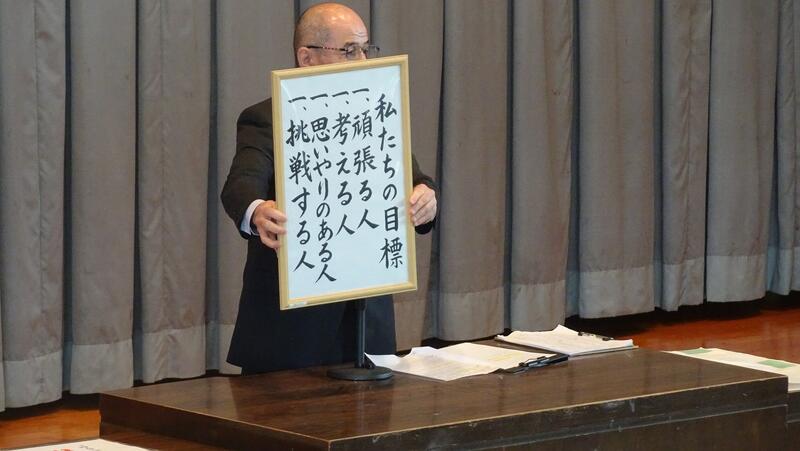 私たちの目標
一、頑張る人
一、考える人
一、思いやりのある人
一、挑戦する人